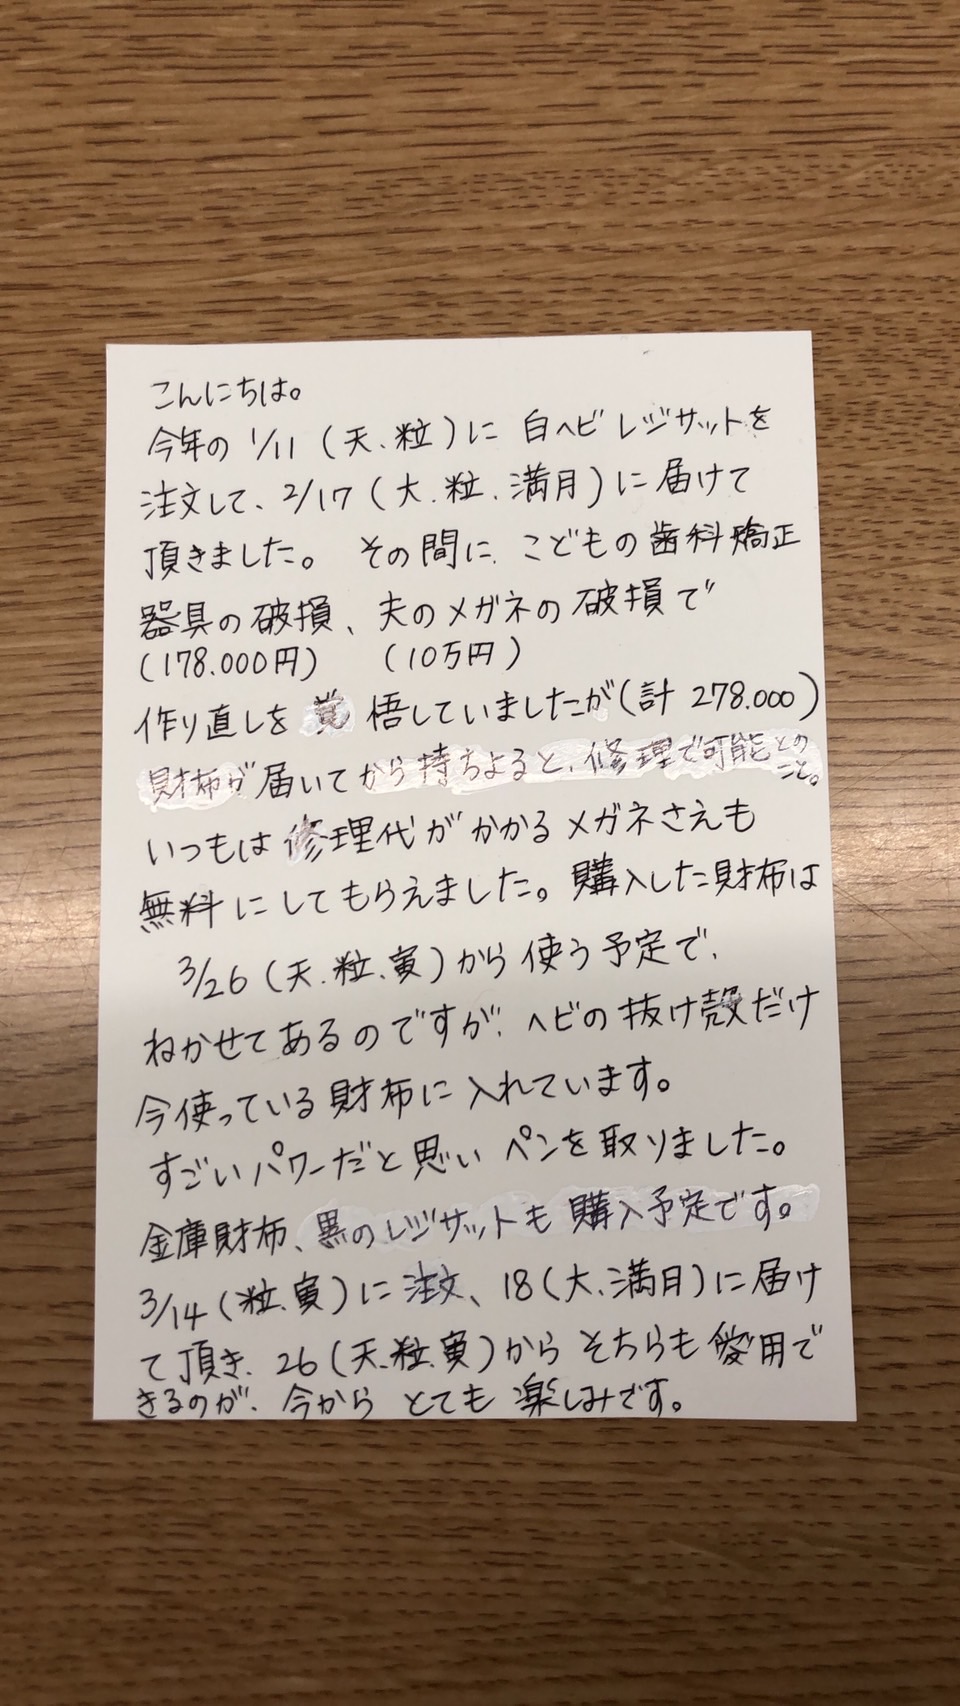 こんにちは。
今年の 1/11 (天.粒)に 白ヘビ レジサットを
注文して、2/17 (大.粒.満月)に届けて
頂きました。 その間に こどもの歯科矯正
器具の破損、夫のメガネの破損で
(178.000円) (10万円)
作り直しを 覚悟していましたが(計 278.000)
財布が届いてから持ちよると、修理で可能とのこと。
いつもは修理代がかかるメガネさえも
無料にしてもらえました。購入した財布は
3/26 (天.粒.寅)から使う予定で、
ねかせてあるのですが、ヘビの抜け殻だけ
今使っている財布に入れています。
すごいパワーだと思い ペンを取りました。
金庫財布、黒のレジサットも購入予定です。
3/14 (粒.寅)に注文、18(大.満月)に届け
て頂き、26(天.粒.寅)からそちらも愛用で
きるのが、今から とても 楽しみです。